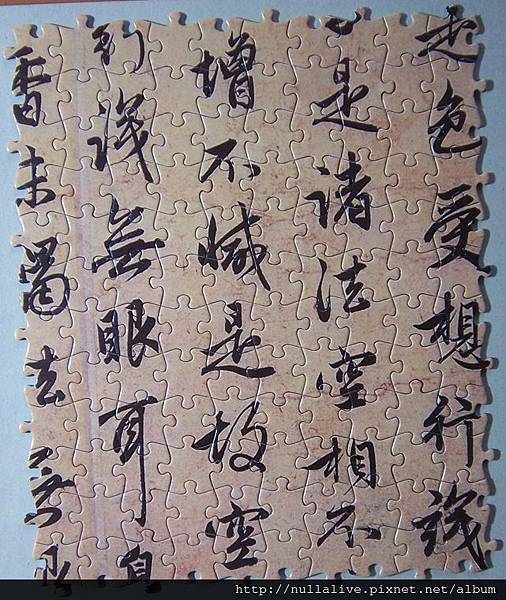 是色受想行識
是諸法空相不
增不減是故空
行識無眼耳鼻
香味觸法無眼
http://nullalive.pixnet.net/album